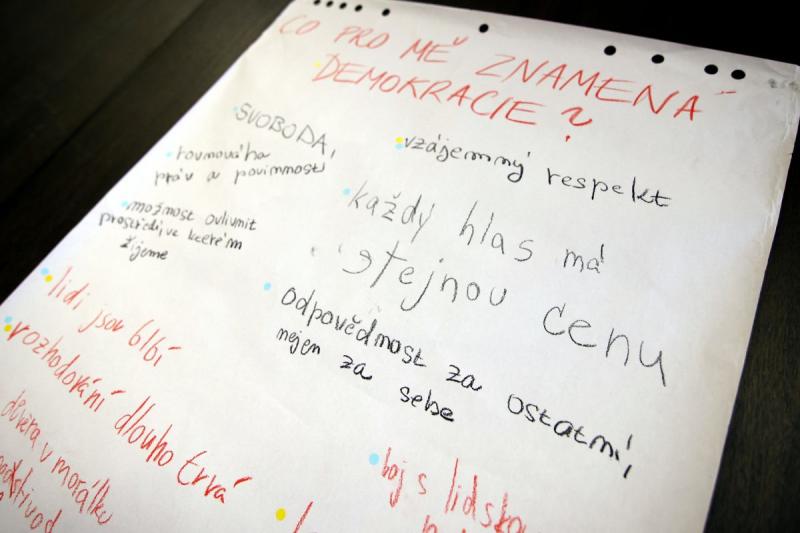 CO PRO MĚ ZNAMENÁ
DEMOKRACIE?
SVOBODA,
rovnováha
práv a povinností
možnost ovlivnit
prostředí, ve kterém
žijeme
vzájemný respekt
každý hlas má
stejnou cenu
odpovědnost za ostatní,
nejen za sebe
lidi jsou blbí
rozhodování dlouho trvá
důvěra v morálku
boj s lidskou